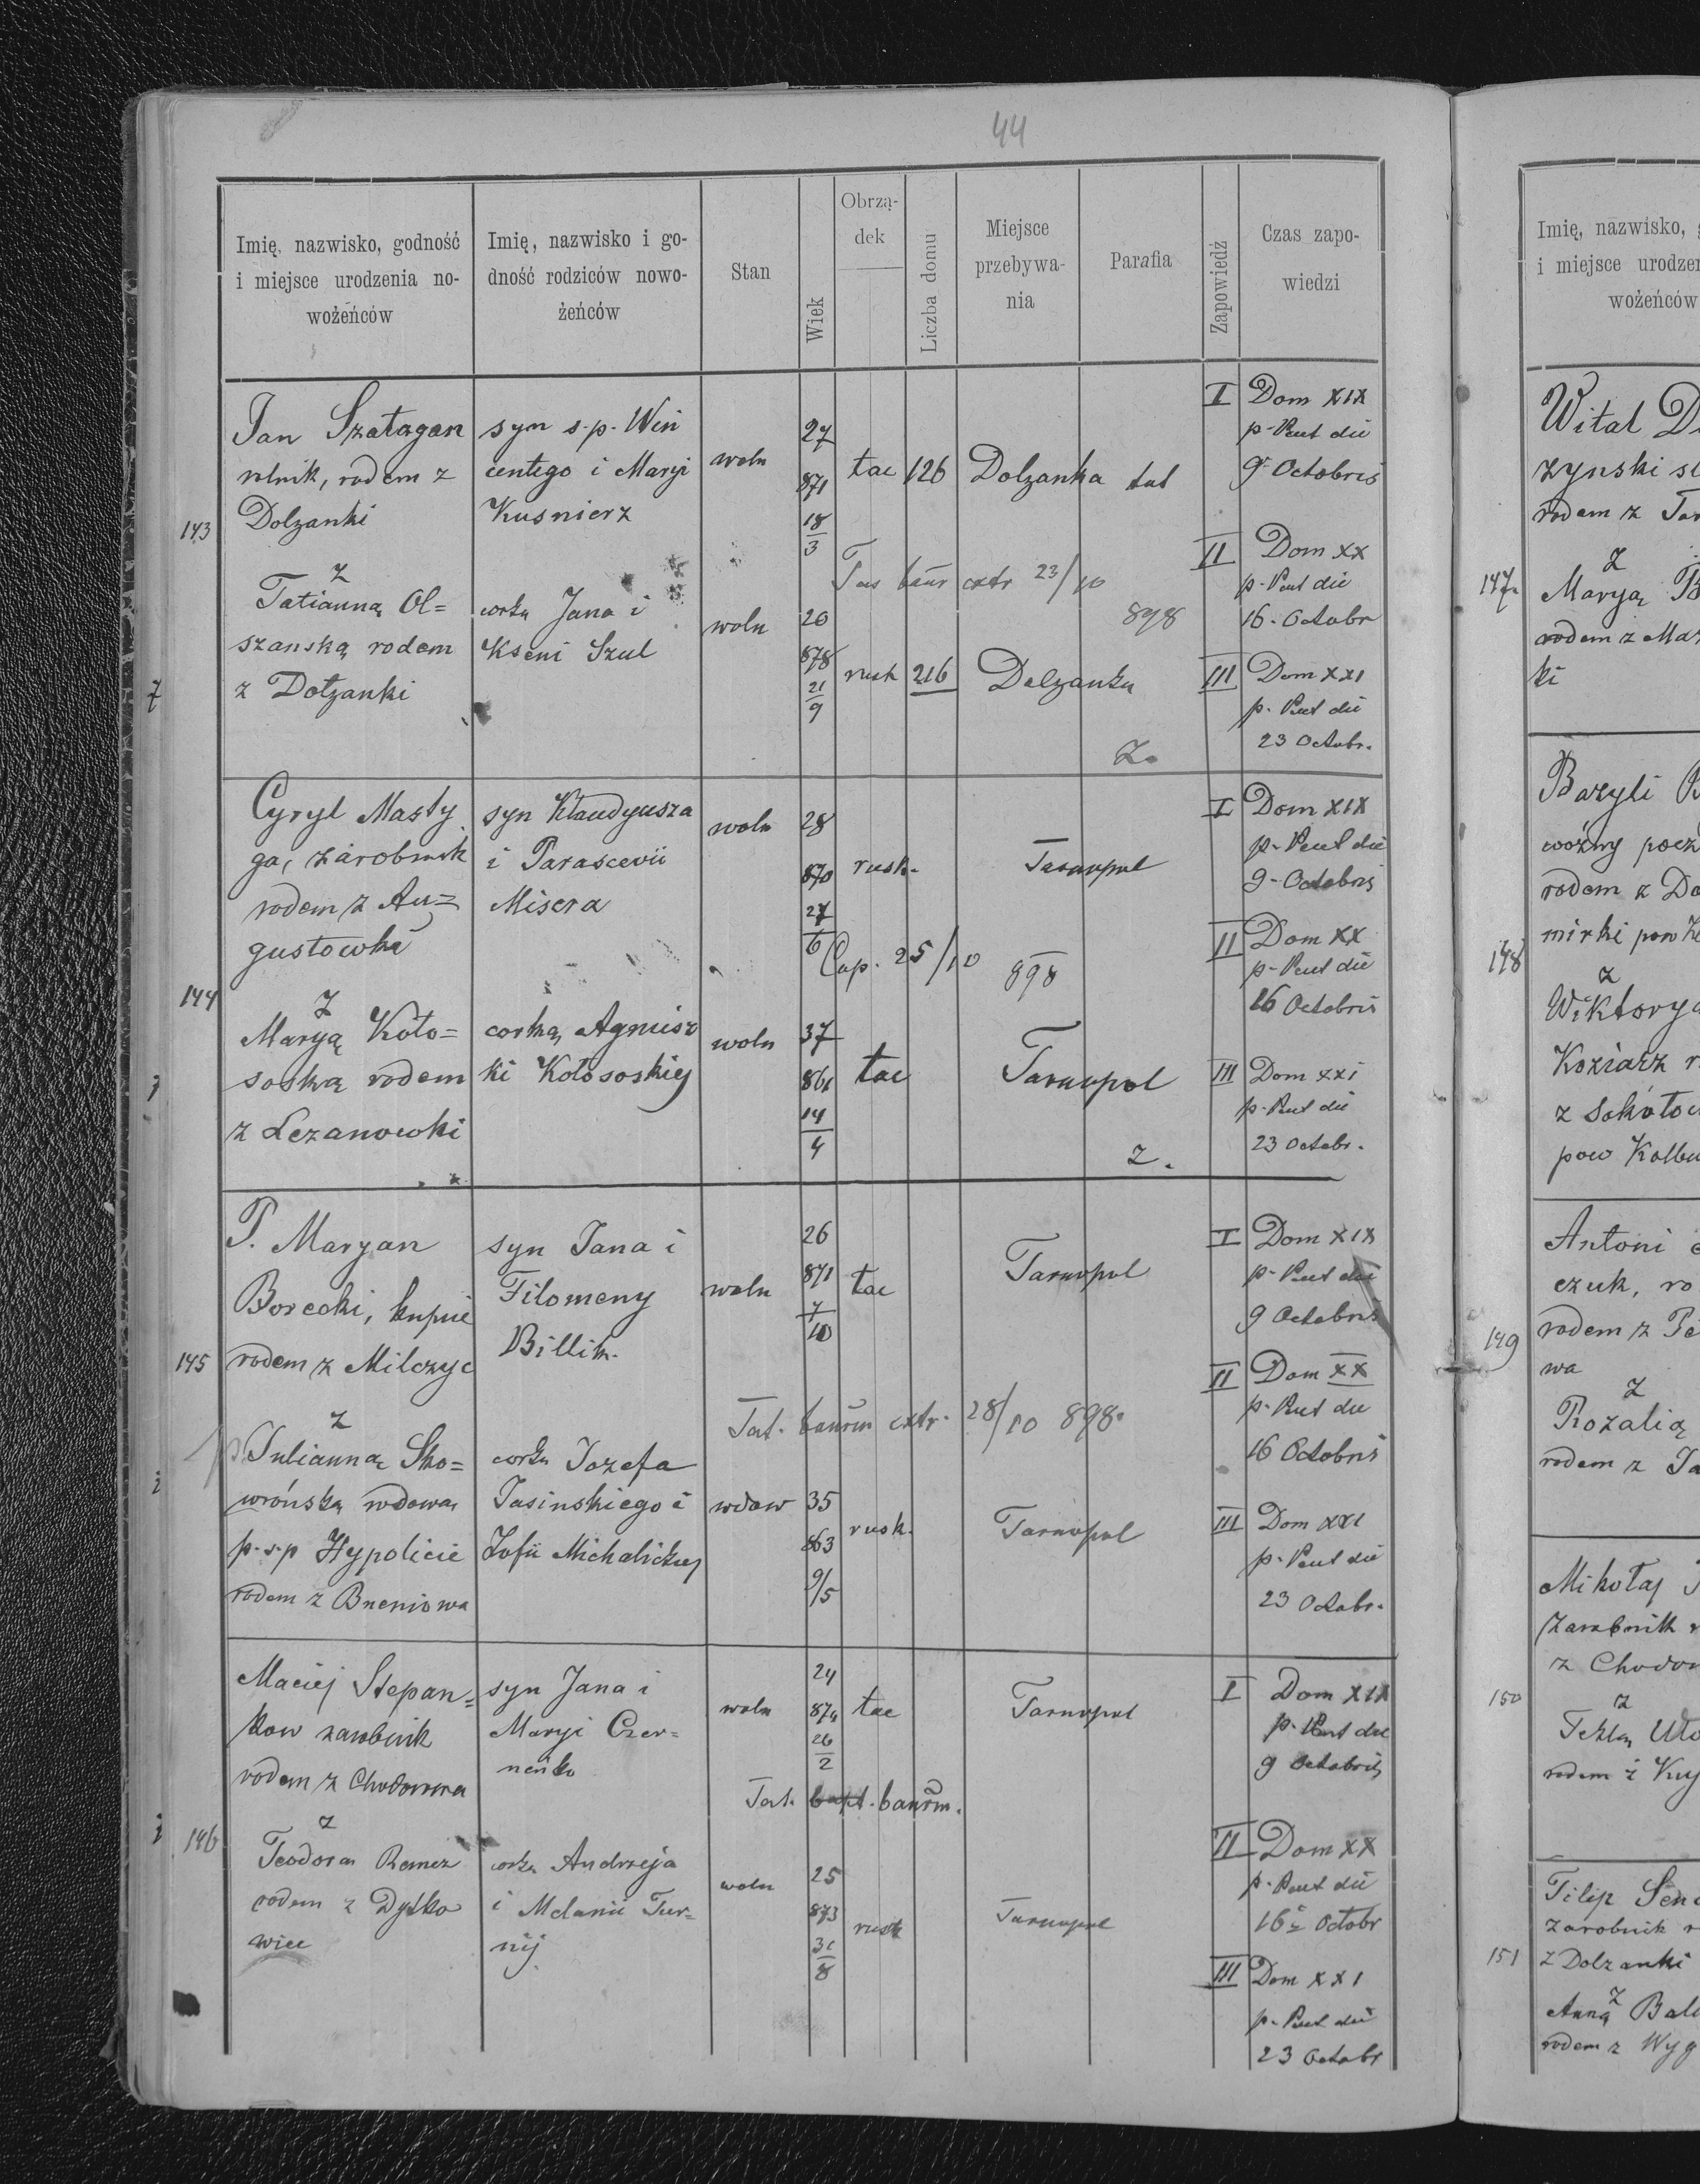 44
Imię, nazwisko, godność
i miejsce urodzenia no-
wożeńców
Imię, nazwisko i go-
dność rodziców nowo-
żeńców
Stan
Wiek
Obrzą-
dek
Liczba domu
Miejsce
przebywa-
nia
Parafia
Zapowiedź
Czas zapo-
wiedzi
143
Jan Szatagan
rolnik, rodem z
Dolzanki
z
Tatianną Ol=
szanską rodem
z Dołzanki
syn s.p. Win
centego i Maryi
Kusnierz
corka Jana i
Kseni Szul
woln
woln
27
871
18
3
20
878
21
9
łac
126
Dolzanka
tut
23/10
898
rusk
216
Dolzanka
Z.
I Dom XIX
p. Pent die
9 Octobris
II Dom XX
p. Pent die
16. Octobr
III Dom XXI
p. Pent die
23 Octobr.
144
Cyryl Masty
ga, zarobnik
rodem z Au=
gustowka
z
Maryą Koło=
soską rodem
z Lezanowki
syn Klaudyusza
i Parascevii
Misera
corką Agnisz
ki Kołososkiej
woln
woln
28
870
27
6
37
861
14
4
rusk.
Tarnopol
Cop. 25/10 898
łac
Tarnopol
Z.
I Dom XIX
p. Pent die
9. Octobris
II Dom XX
p. Pent die
16 Octobris
III Dom XXI
p. Pent die
23 Octobr.
145
P. Maryan
Borecki, kupiec
rodem z Milczyc
z
Julianną Sko=
wrońską wdową
p. s.p Hypolicie
rodem z Bneniowa
syn Jana i
Filomeny
Billik.
corka Jozefa
Jasinskiego i
Zofii Michalickiej
woln
wdow
26
871
7
10
35
863
9/5
łac
Tarnopol
Tat. bannm extr. 28/10 898.
rusk.
Tarnopol
I Dom XIX
p. Pent die
9 Octobris
II Dom XX
p. Pent die
16 Octobris
III Dom XXI
p. Pent die
23 Octobr.
146
Maciej Stepan=
kow zarobnik
rodem z Chodorowa
z
Teodora Remez
rodem z Dytko
wiec
syn Jana i
Maryi Czer=
neńko
corka Andrzeja
i Melanii Tur=
nij
woln
woln
24
874
26
2
25
873
31
8
łac
Tarnopol
Tat. bannm.
rusk
Tarnopol
I Dom XIX
p. Pent die
9 Octobris
II Dom XX
p. Pent die
16 Octobr
III Dom XXI
p. Pent die
23 Octobr
Imię, nazwisko,
i miejsce urodzen
wożeńców
147
Wital
zynski
rodem z Tar
z
Maryą
rodem z Mar
ki
148
Bazyli
woźny pocz
rodem z Do
mirki pow
z
Wiktorya
Koziarz
z Sokołow
pow Kolbu
149
Antoni
czuk, ro
rodem z
wa
z
Rozalią
rodem z
150
Mikołaj
zarobnik
z Chodor
z
Teklą
rodem z
151
Filip
zarobnik
z Dolzanki
z
Anną
rodem z Wyg